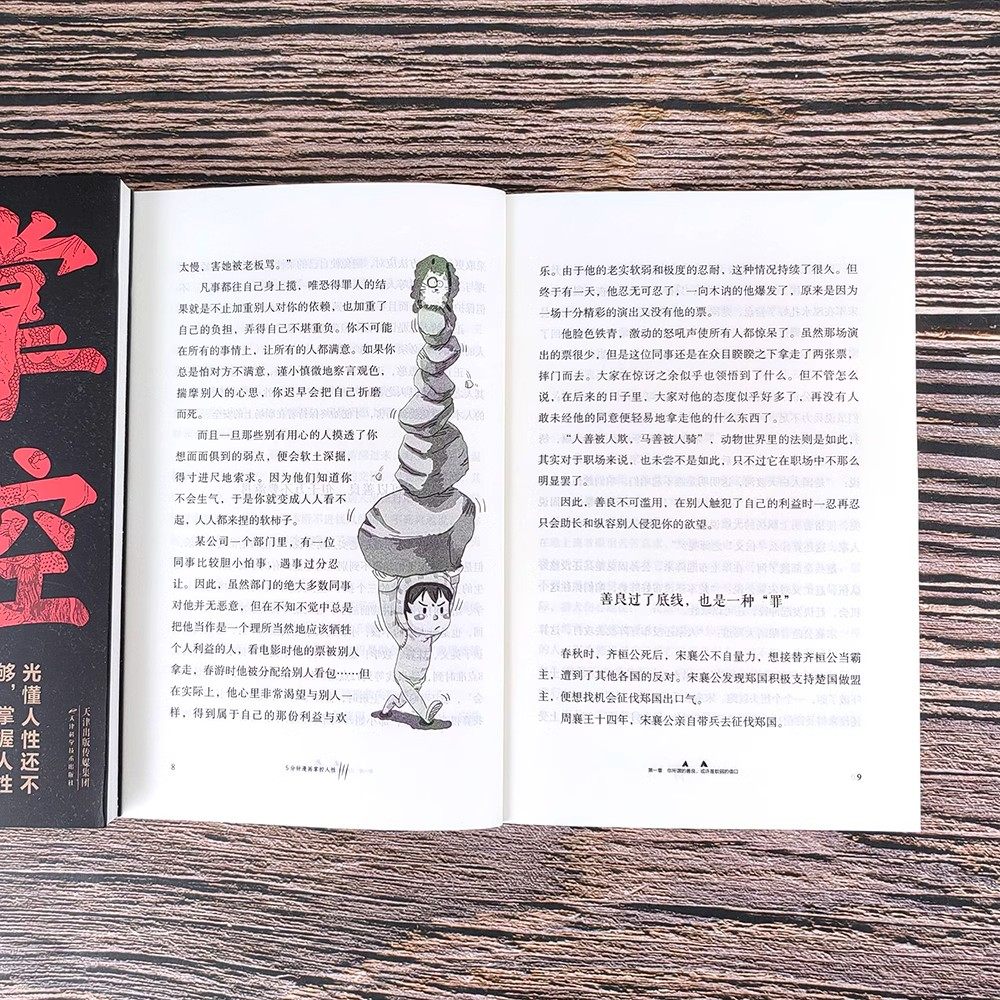 控
光懂人性还不
够，掌握人性
天津出版传媒集团
天津科学技术出版社
太慢，害她被老板骂。”
凡事都往自己身上揽，唯恐得罪人的结
果就是不止加重别人对你的依赖，也加重了
自己的负担，弄得自己不堪重负。你不可能
在所有的事情上，让所有的人都满意。如果你
总是怕对方不满意，谨小慎微地察言观色，
揣摩别人的心思，你迟早会把自己折磨
而死。
而且一旦那些别有用心的人摸透了你
想面面俱到的弱点，便会软土深掘，
得寸进尺地索求。因为他们知道你
不会生气，于是你就变成人人看不
起，人人都来捏的软柿子。
某公司一个部门里，有一位
同事比较胆小怕事，遇事过分忍
让。因此，虽然部门的绝大多数同事
对他并无恶意，但在不知不觉中总是
把他当作是一个理所当然地应该牺牲
个人利益的人，看电影时他的票被别人
拿走，春游时他被分配给别人看包……但
在实际上，他心里非常渴望与别人一
样，得到属于自己的那份利益与欢
8
5分钟漫画掌控人性
乐。由于他的老实软弱和极度的忍耐，这种情况持续了很久。但
终于有一天，他忍无可忍了，一向木讷的他爆发了，原来是因为
一场十分精彩的演出又没有他的票。
他脸色铁青，激动的怒吼声使所有人都惊呆了。虽然那场演
出的票很少，但是这位同事还是在众目睽睽之下拿走了两张票，
摔门而去。大家在惊讶之余似乎也领悟到了什么。但不管怎么
说，在后来的日子里，大家对他的态度似乎好多了，再没有人
敢未经他的同意便轻易地拿走他的什么东西了。
“人善被人欺，马善被人骑”，动物世界里的法则是如此，
其实对于职场来说，也未尝不是如此，只不过它在职场中不那么
明显罢了。
因此，善良不可滥用，在别人触犯了自己的利益时一忍再忍
只会助长和纵容别人侵犯你的欲望。
善良过了底线，也是一种“罪”
春秋时，齐桓公死后，宋襄公不自量力，想接替齐桓公当霸
主，遭到了其他各国的反对。宋襄公发现郑国积极支持楚国做盟
主，便想找机会征伐郑国出口气。
周襄王十四年，宋襄公亲自带兵去征伐郑国。
第一章 你所谓的善良，或许是软弱的借口
9